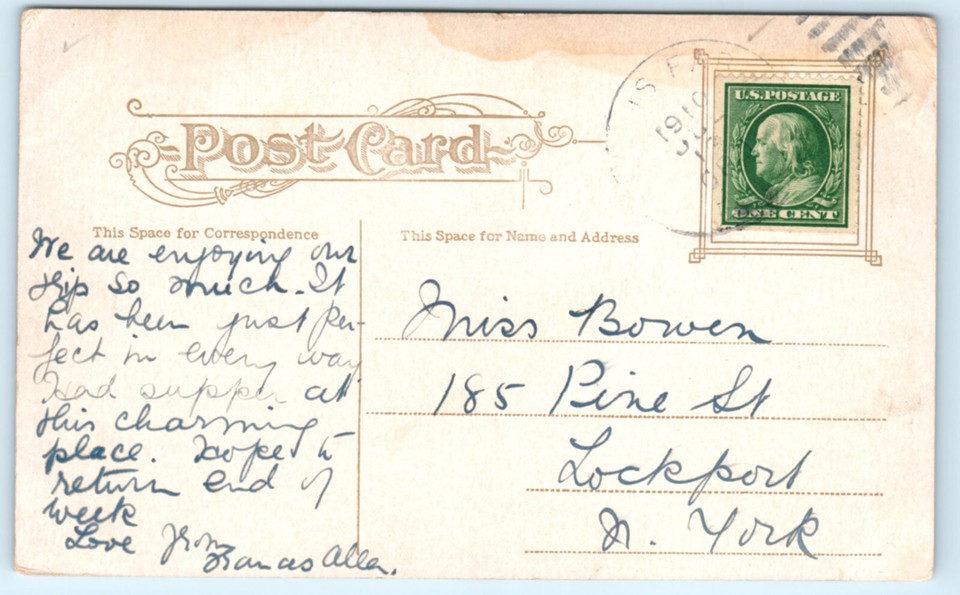 Post Card
1910
U.S. POSTAGE
ONE CENT
This Space for Correspondence
This Space for Name and Address
We are enjoying our
trip so much. It
has been just per-
fect in every way
Had supper at
this charming
place. Hope to
return end of
week
Love from
Frances Allen.
Miss Bowen
185 Pine St
Lockport
N. York